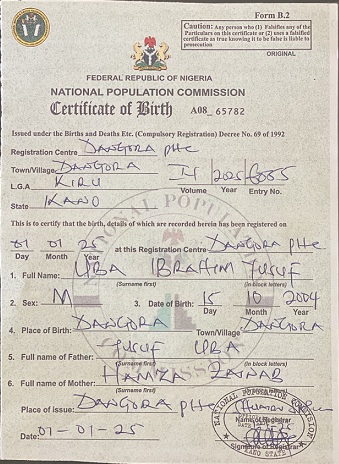 Form B.2
Caution: Any person who (1) Falsifies any of the
Particulars on this certificate or (2) uses a falsified
certificate as true knowing it to be false is liable to
prosecution
ORIGINAL
FEDERAL REPUBLIC OF NIGERIA
NATIONAL POPULATION COMMISSION
Certificate of Birth A08_ 65782
Issued under the Births and Deaths Etc. (Compulsory Registration) Decree No. 69 of 1992
Registration Centre DANGORA PHC
Town/Village DANGORA 2025
L.G.A KIRU Volume Year Entry No.
State KANO
This is to certify that the birth, details of which are recorded herein has been registered on
01 01 25 at this Registration Centre DANGORA PHC
Day Month Year
1. Full Name: UBA IBRAHIM YUSUF
(Surname first) (in block letters)
2. Sex: M 3. Date of Birth: 15 10 2004
Day Month Year
4. Place of Birth: DANGORA Town/Village: DANGORA
5. Full name of Father: YUSUF UBA
(Surname first) (in block letters)
6. Full name of Mother: HAMZA ZAINAB
(Surname first) (in block letters)
Place of issue: DANGORA PHC
Name of Registrar
Date: 01-01-25
Signature of Registrar
NATIONAL POPULATION COMMISSION